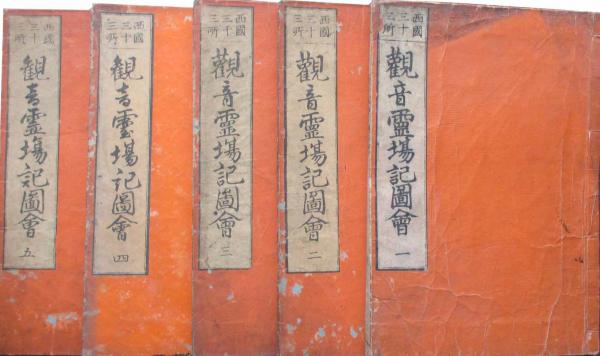 西國
三十
三所
觀音靈場記圖會
一
西國
三十
三所
觀音靈場記圖會
二
西國
三十
三所
觀音靈場記圖會
三
西國
三十
三所
観音霊場記圖會
四
西國
三十
三所
観音靈場記圖會
五